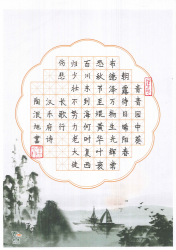 青青园中葵
朝露待日晞阳春
布德泽万物生光辉常
恐秋节至焜黄华叶衰
百川东到海何时复西
归少壮不努力老大徒
伤悲
长歌行
汉乐府诗